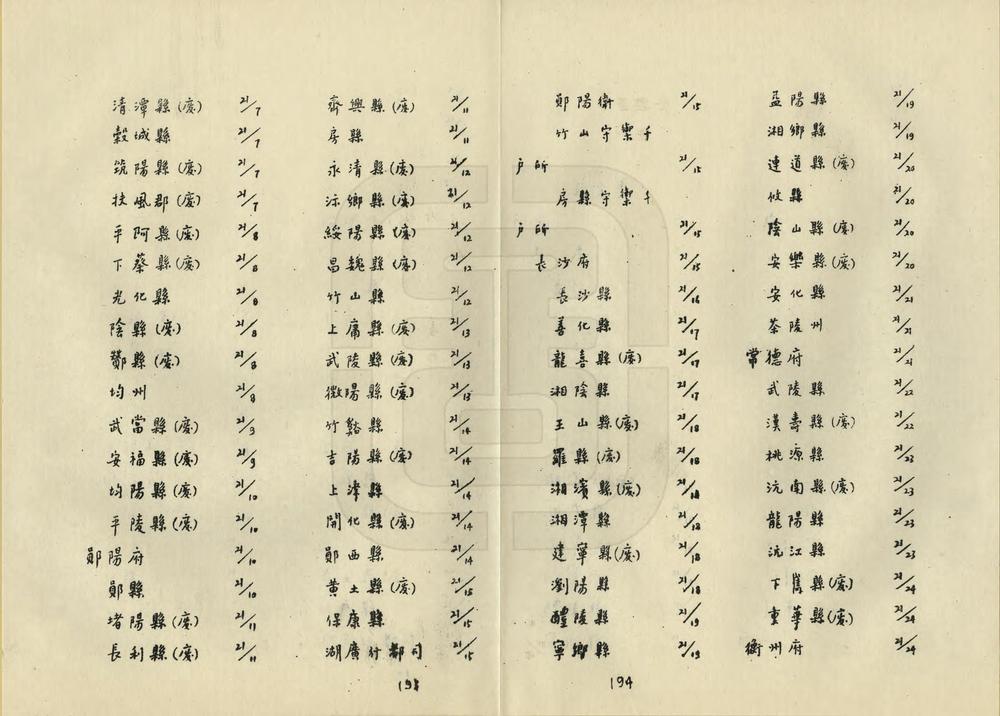 清潭縣(廢) 21/7
穀城縣 21/7
筑陽縣(廢) 21/7
扶風郡(廢) 21/7
平阿縣(廢) 21/8
下蔡縣(廢) 21/8
光化縣 21/8
陰縣(廢) 21/8
酇縣(廢) 21/8
均州 21/8
武當縣(廢) 21/9
安福縣(廢) 21/9
均陽縣(廢) 21/10
平陵縣(廢) 21/10
鄖陽府 21/10
鄖縣 21/10
堵陽縣(廢) 21/11
長利縣(廢) 21/11
齊興縣(廢) 21/11
房縣 21/11
永清縣(廢) 21/12
沶鄉縣(廢) 21/12
綏陽縣(廢) 21/12
昌魏縣(廢) 21/12
竹山縣 21/12
上庸縣(廢) 21/13
武陵縣(廢) 21/13
微陽縣(廢) 21/13
竹谿縣 21/14
吉陽縣(廢) 21/14
上津縣 21/14
開化縣(廢) 21/14
鄖西縣 21/14
黃土縣(廢) 21/15
保康縣 21/15
湖廣行都司 21/15
193
鄖陽衛 21/15
竹山守禦千
戶所 21/15
房縣守禦千
戶所 21/15
長沙府 21/15
長沙縣 21/16
善化縣 21/17
龍喜縣(廢) 21/17
湘陰縣 21/17
王山縣(廢) 21/18
羅縣(廢) 21/18
湘濱縣(廢) 21/18
湘潭縣 21/18
建寧縣(廢) 21/18
瀏陽縣 21/18
醴陵縣 21/19
寧鄉縣 21/19
益陽縣 21/19
湘鄉縣 21/19
連道縣(廢) 21/20
攸縣 21/20
陰山縣(廢) 21/20
安樂縣(廢) 21/20
安化縣 21/21
茶陵州 21/21
常德府 21/21
武陵縣 21/22
漢壽縣(廢) 21/22
桃源縣 21/23
沅南縣(廢) 21/23
龍陽縣 21/23
沅江縣 21/23
下雋縣(廢) 21/24
重華縣(廢) 21/24
衡州府 21/24
194